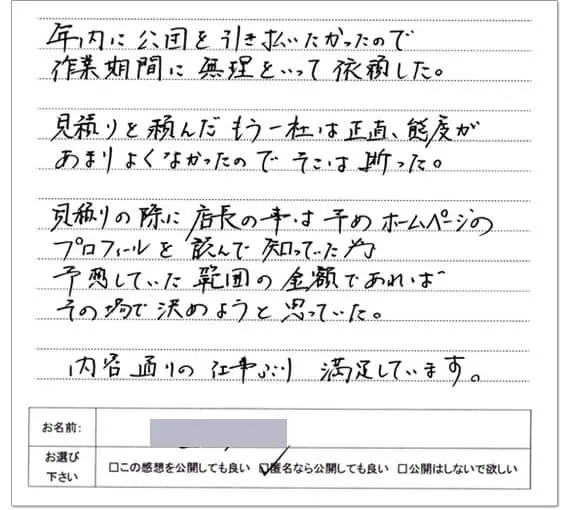 年内に公団を引き払いたかったので
作業期間に無理をいって依頼した。
見積りを頼んだもう一社は正直、態度が
あまりよくなかったのでそこは断った。
見積りの際に店長の事は予めホームページの
プロフィールを読んで知っていた為
予想していた範囲の金額であれば
その場で決めようと思っていた。
内容通りの仕事ぶり 満足しています。
お名前:
お選び下さい
□この感想を公開しても良い ☑匿名なら公開しても良い □公開はしないで欲しい